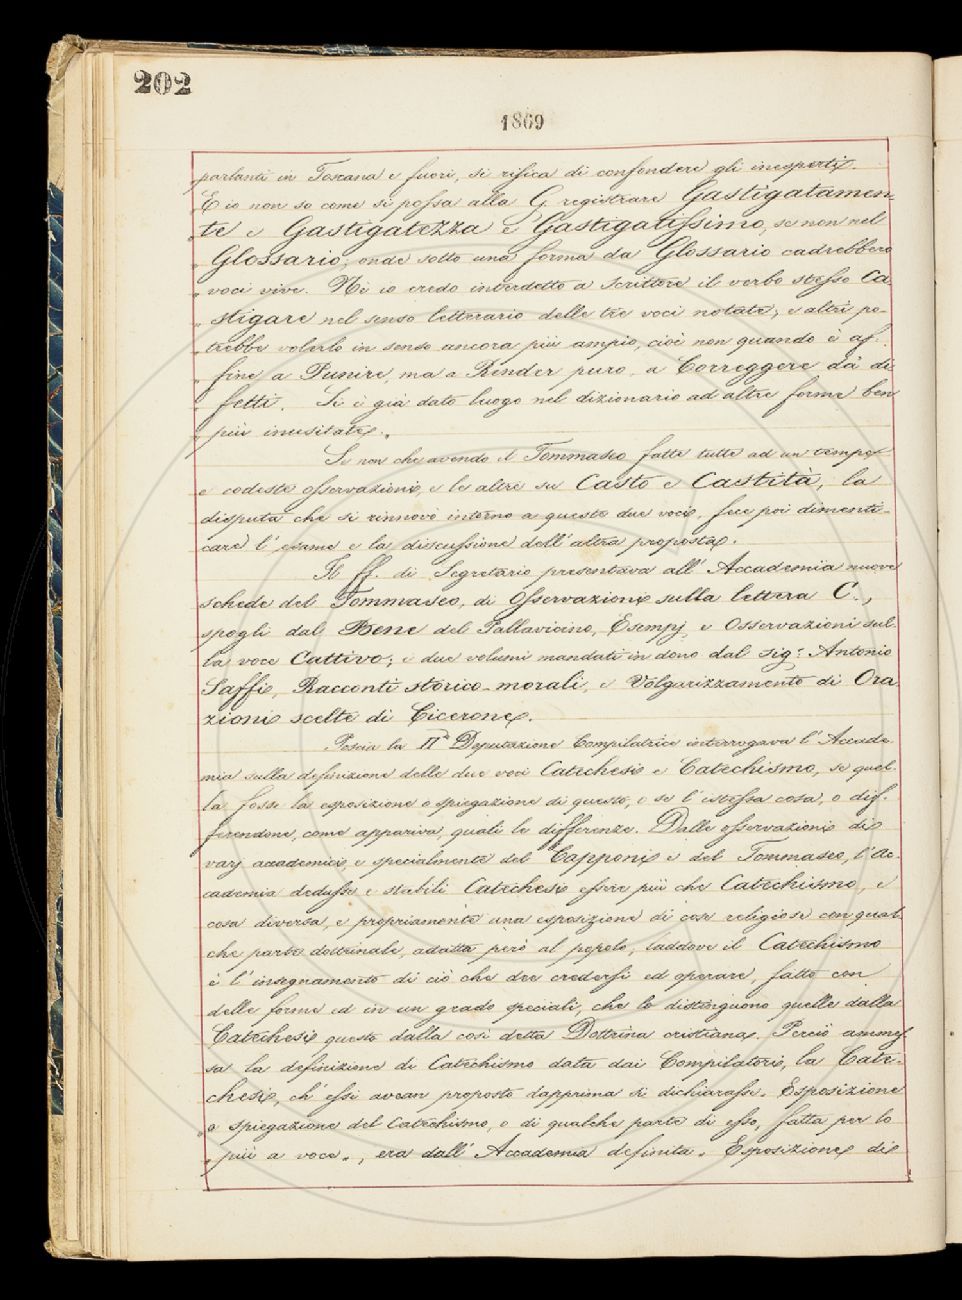 202
1869
parlanti in Toscana e fuori, si risica di confondere gli inesperti.
E io non so come si possa alla G. registrare Gastigatamen-
„ te e Gastigatezza e Gastigatissimo, se non nel
„ Glossario; onde sotto una forma da Glossario cadrebbero
„ voci vive. Nè io credo interdetto a scrittore il verbo stesso Ca
„ stigare nel senso letterario delle tre voci notate; e altri po-
„ trebbe volerlo in senso ancora più ampio, cioè non quando è af-
„ fine a Punire, ma a Render puro, a Correggere da' di
„ fetti. Si è già dato luogo nel dizionario ad altre forme ben
„ più inusitate.„
Se non che avendo il Tommaseo fatte tutte ad un tempo
e codeste osservazioni, e le altre su Casto e Castità, la
disputa che si rinnovò intorno a queste due voci, fece poi dimenti-
care l'esame e la discussione dell'altra proposta.
Il ff. di Segretario presentava all'Accademia nuove
schede del Tommaseo, di Osservazioni sulla lettera C.,
spogli dal Bene del Pallavicino, Esempj e Osservazioni sul-
la voce Cattivo; e due volumi mandati in dono dal sig.r Antonio
Saffi, Racconti storico-morali, e Volgarizzamento di Ora
zioni scelte di Cicerone.
Poscia la IIa Deputazione Compilatrice interrogava l'Accade-
mia sulla definizione delle due voci Catechesi e Catechismo, se quel-
la fosse la esposizione o spiegazione di questo, o se l'istessa cosa, o dif-
ferendone, come appariva, quali le differenze. Dalle osservazioni di
varj accademici e specialmente del Capponi e del Tommaseo, l'Ac-
cademia dedusse e stabilì Catechesi essere più che Catechismo, e
cosa diversa, e propriamente una esposizione di cose religiose con qual-
che parte dottrinale, adatta però al popolo; laddove il Catechismo
è l'insegnamento di ciò che dee credersi ed operare, fatto con
delle forme ed in un grado speciali, che lo distinguono quelle dalla
Catechesi questo dalla così detta Dottrina cristiana. Perciò ammes-
sa la definizione di Catechismo data dai Compilatori, la Cate-
chesi, ch'essi avean proposto dapprima si dichiarasse „ Esposizione
„ o spiegazione del Catechismo, o di qualche parte di esso, fatta per lo
„ più a voce „, era dall'Accademia definita „ Esposizione di